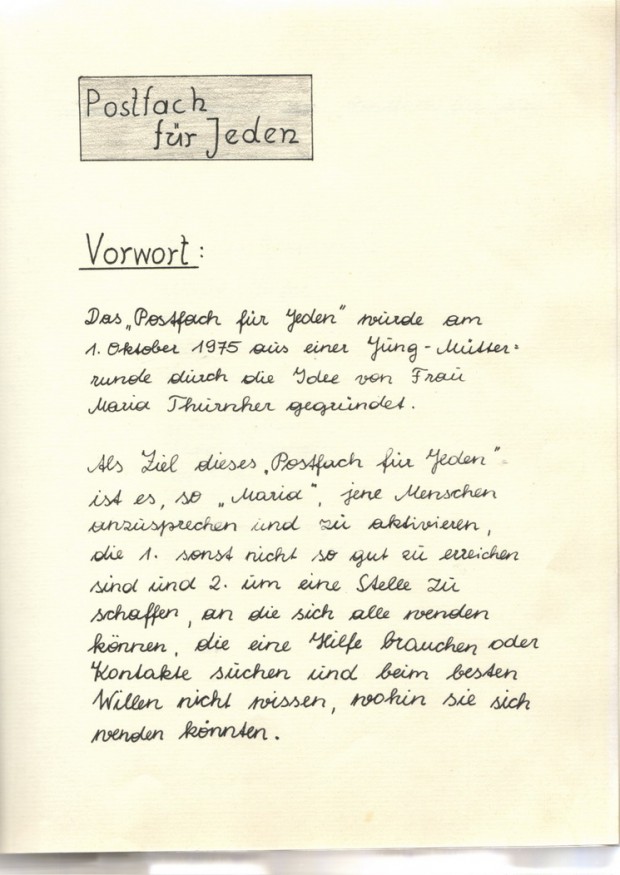 Postfach
für Jeden
Vorwort:
Das „Postfach für Jeden" wurde am
1. Oktober 1975 aus einer Jung-Mütter=
runde durch die Idee von Frau
Maria Thurnher gegründet.
Als Ziel dieses „Postfach für Jeden"
ist es, so „Maria", jene Menschen
anzusprechen und zu aktivieren,
die 1. sonst nicht so gut zu erreichen
sind und 2. um eine Stelle zu
schaffen, an die sich alle wenden
können, die eine Hilfe brauchen oder
Kontakte suchen und beim besten
Willen nicht wissen, wohin sie sich
wenden könnten.